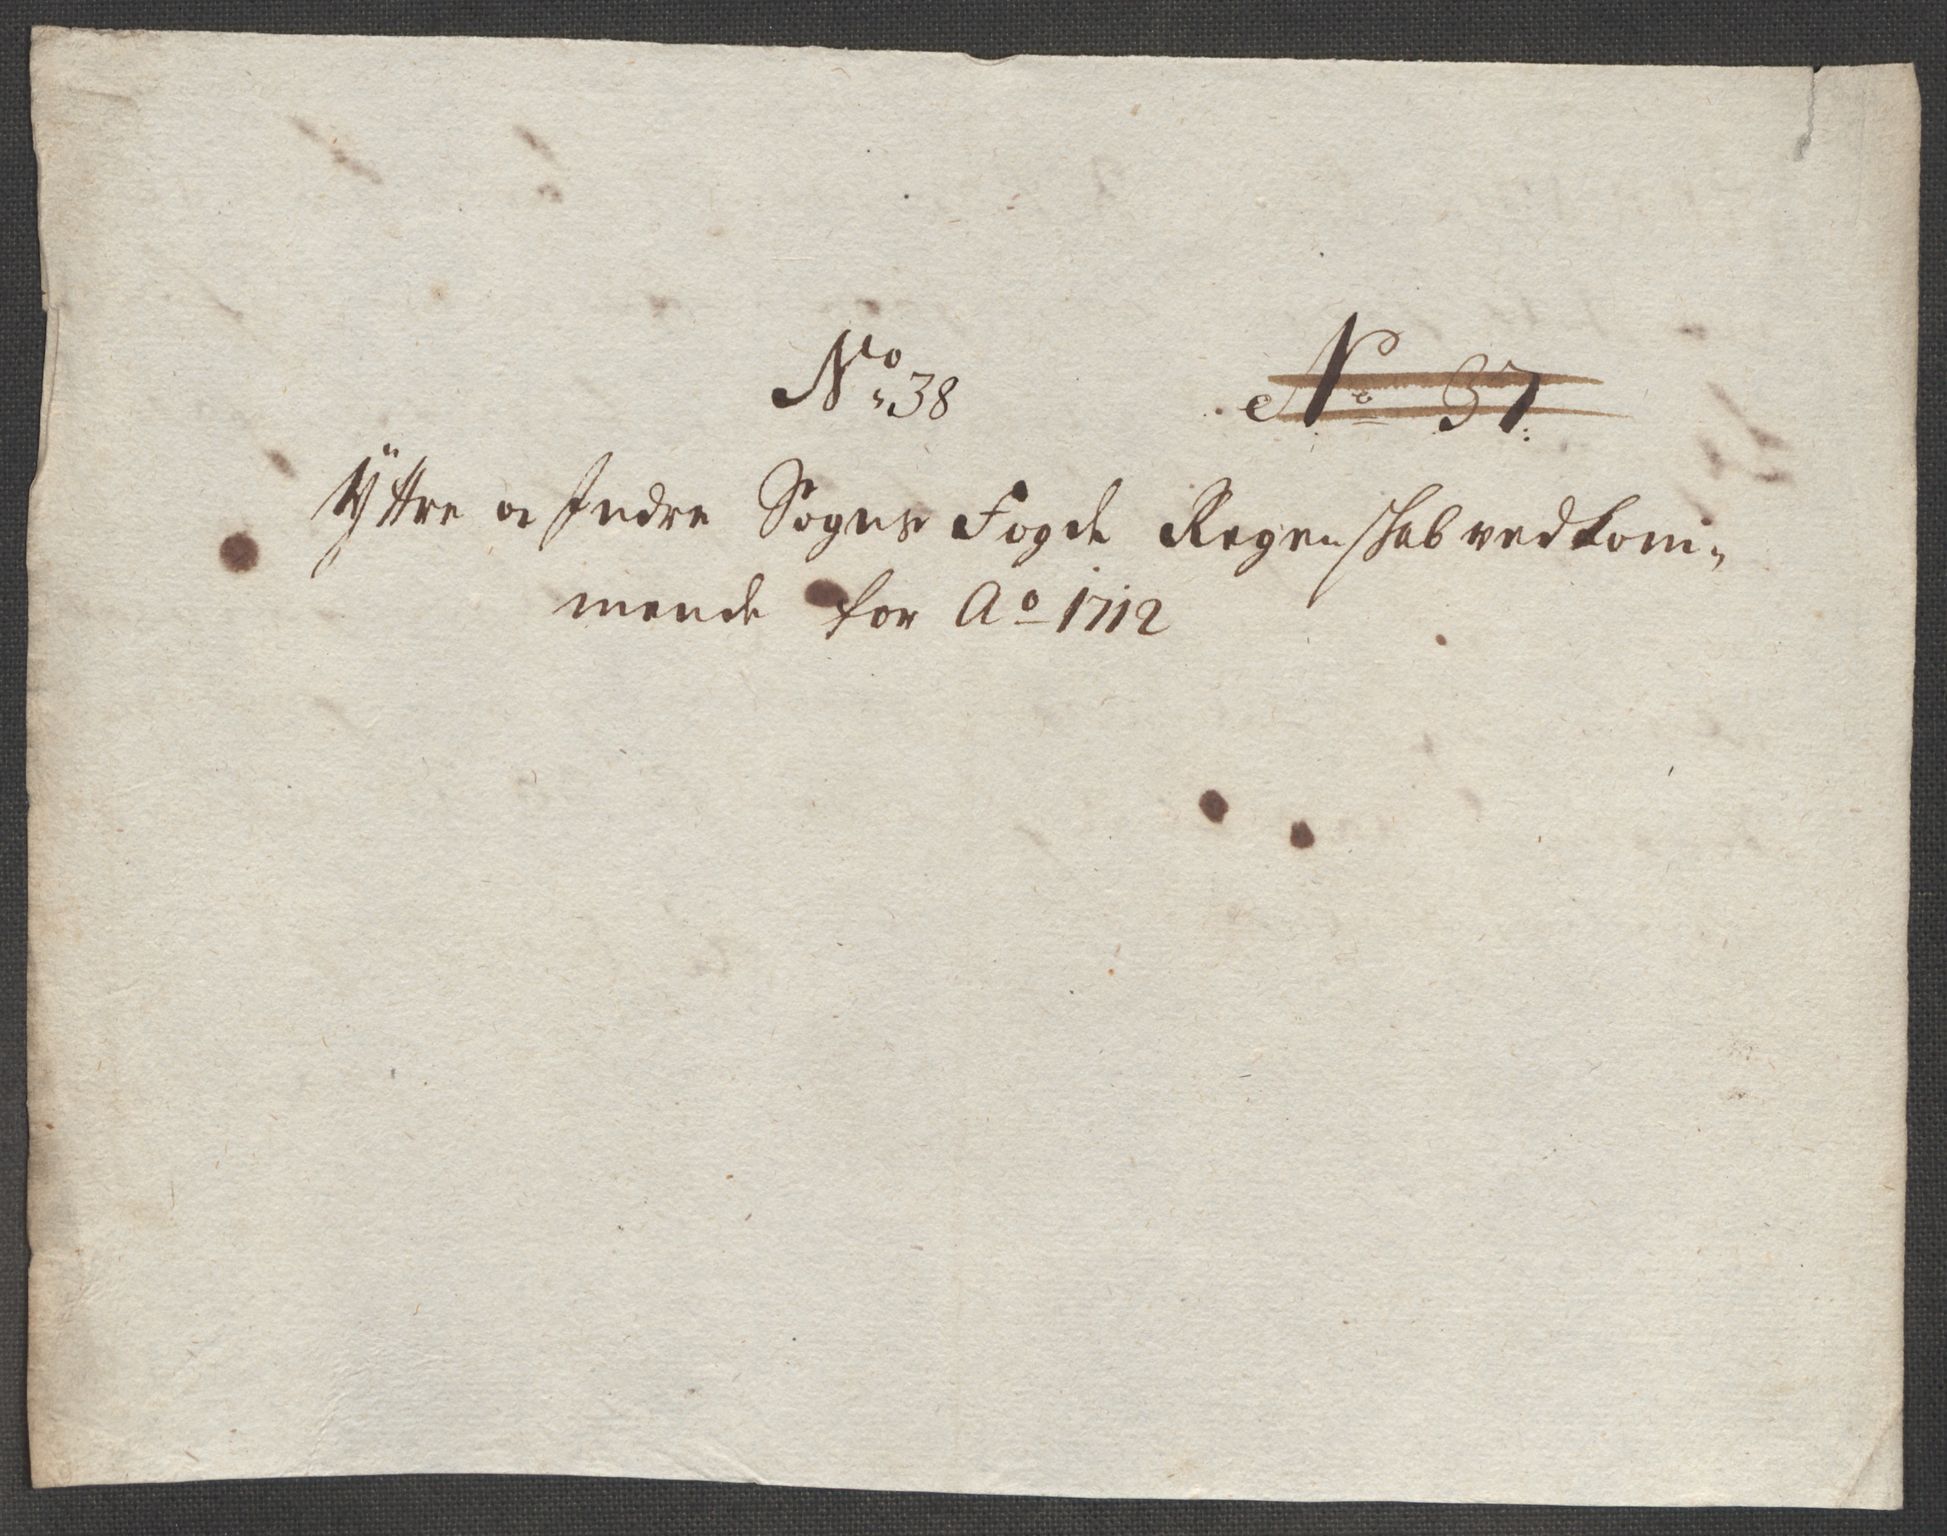 No 38 No 37
Ÿttre oc Indre Sogns Fogde Regenschab vedkom-
mende for Ao 1712